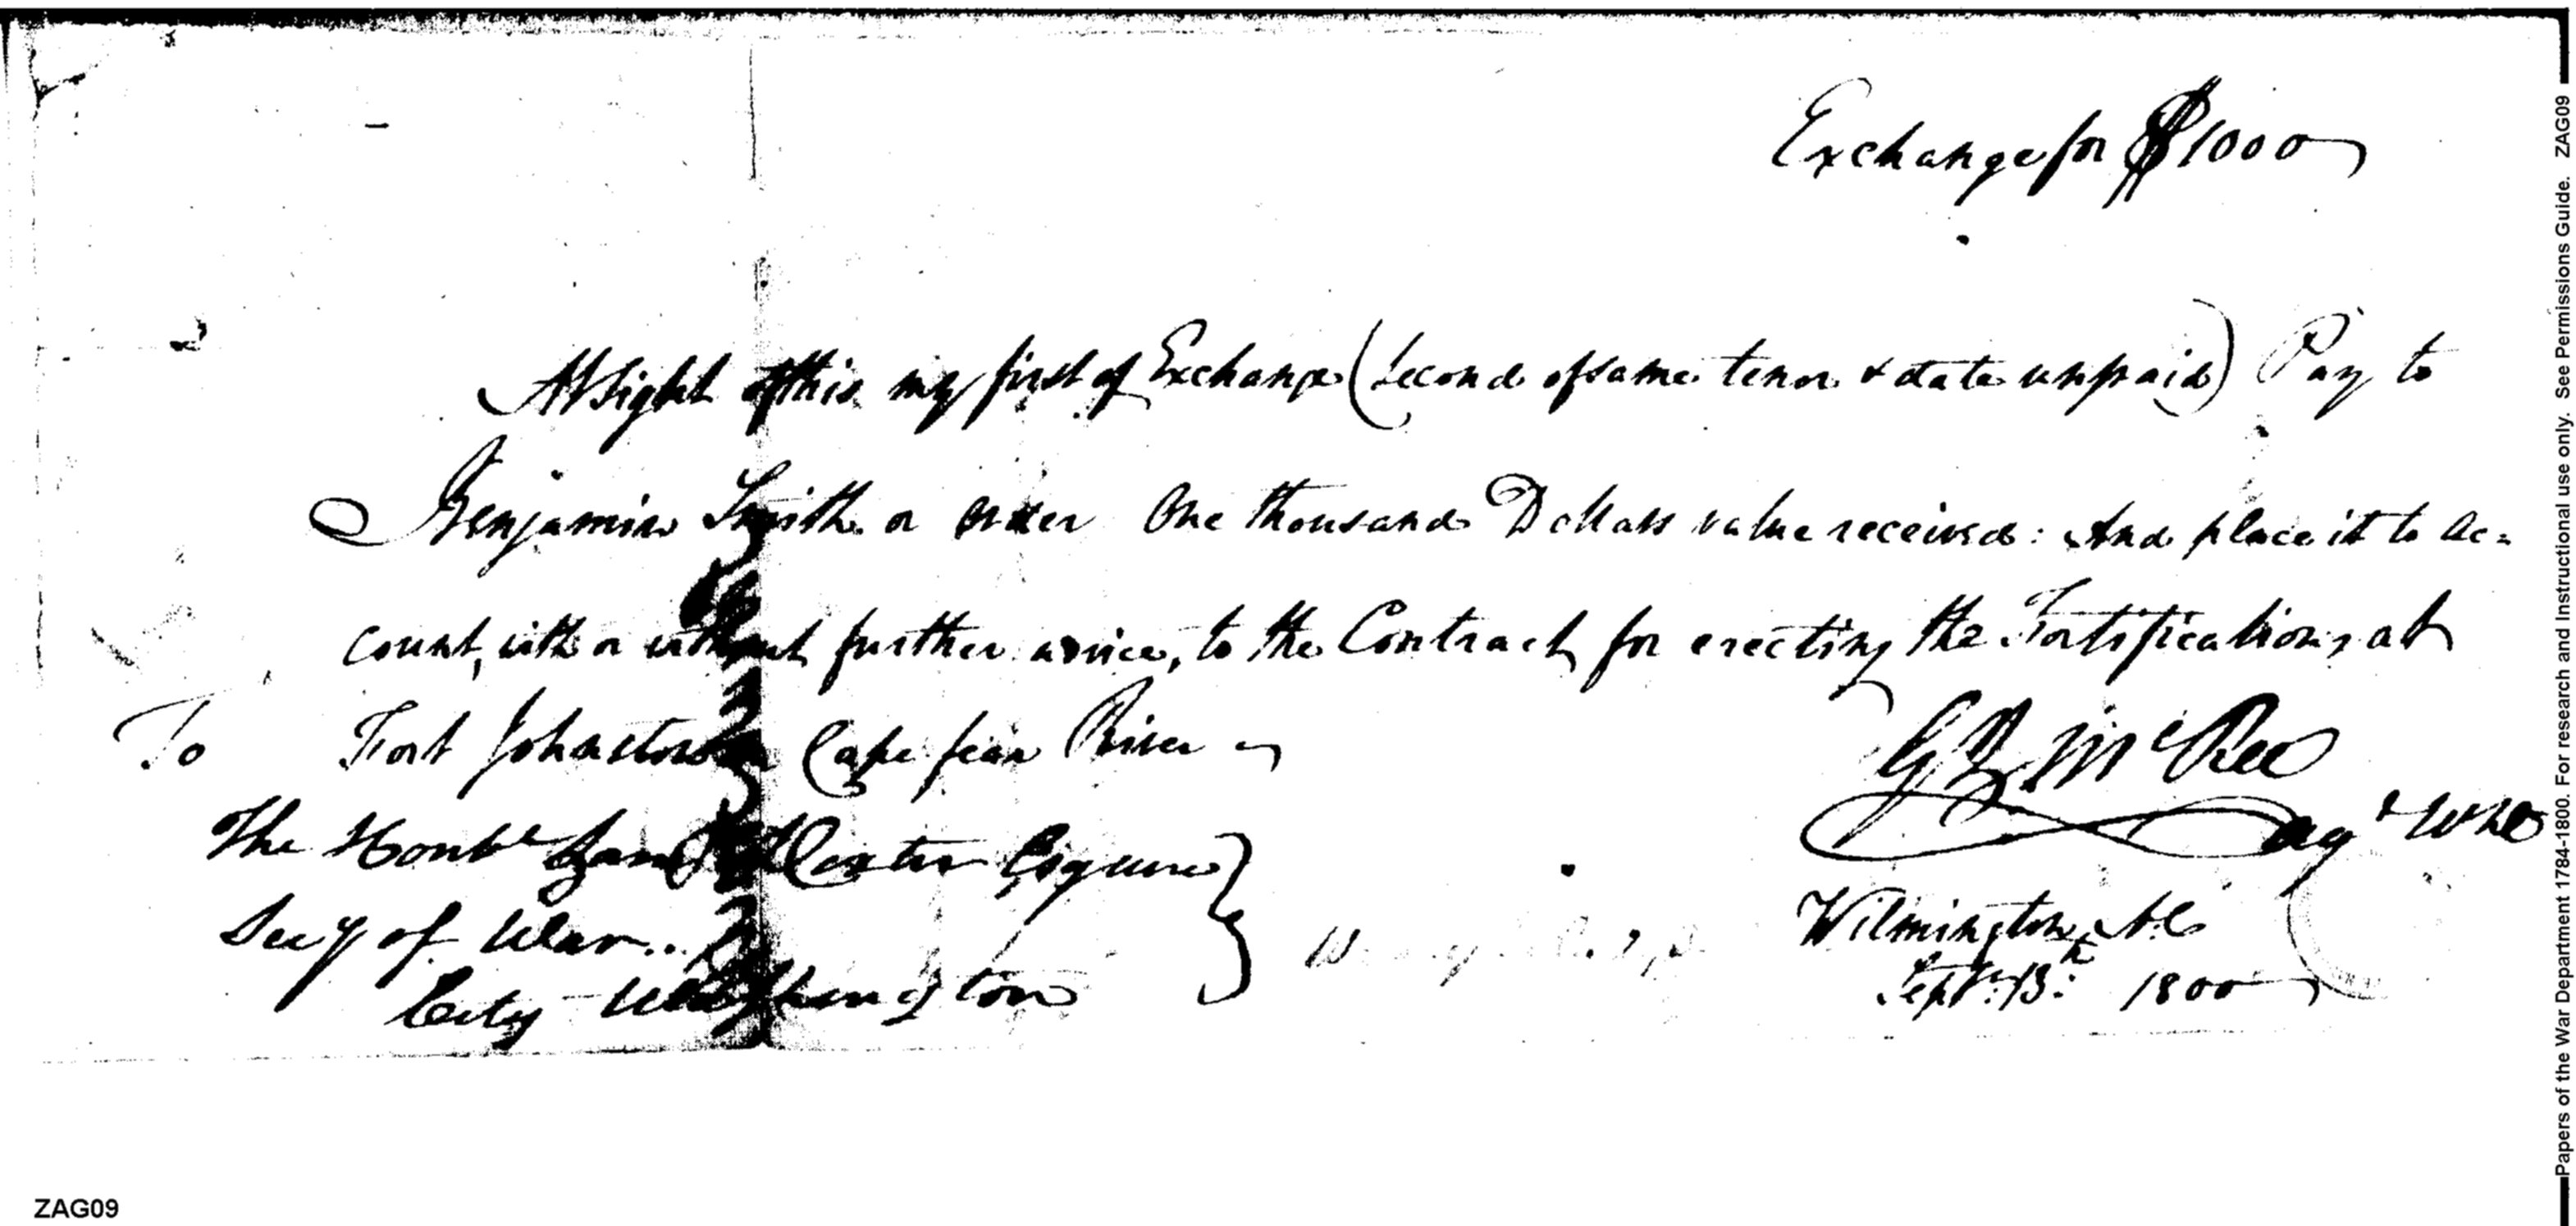 Exchange for $1000
At Sight of this my first of Exchange (Second of same tenor & date unpaid) Pay to
Benjamin Smith or order One thousand Dollars value received: And place it to ac=
count, with or without further advice, to the Contract for erecting the Fortifications at
Fort Johnston Cape fear River
To
G J McRee
agt WD
The Honble Saml Dexter Esquire
Secy of War..
City Washington
Wilmington, N.C
Sept. 13th 1800
Papers of the War Department 1784-1800. For research and Instructional use only. See Permissions Guide. ZAG09
ZAG09